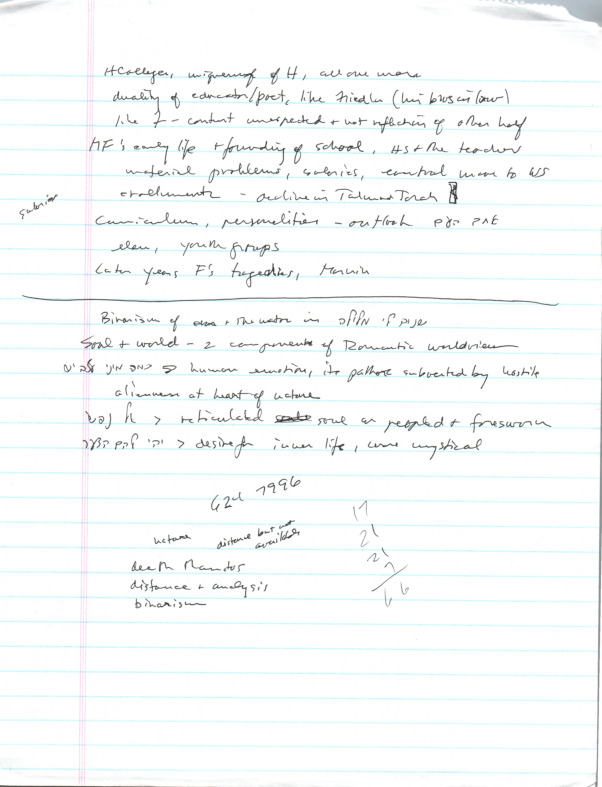 HColleges, uniqueness of H, all one more
duality of educator/poet, like Friedln (his bros in law)
like F – content unexpected + not reflection of other half
HF's early life + founding of school, HS + the teachers
material problems, salaries, central move to WS
enrollments – decline in Talmud Torah
salaries
Curriculum, personalities – outlook
elan, youth groups
Later years F's tragedies, Marvin
Binarism of + theater in
Soul + world – 2 components of Romantic worldview
human emotion, its pathos subverted by hostile
alienness at heart of nature
> reticulated soul as peopled + foresworn
> desire for inner life, une mystical
G2d 1996
nature distance but not
available
death
distance + analysis
binarism
17
21
21
7
66